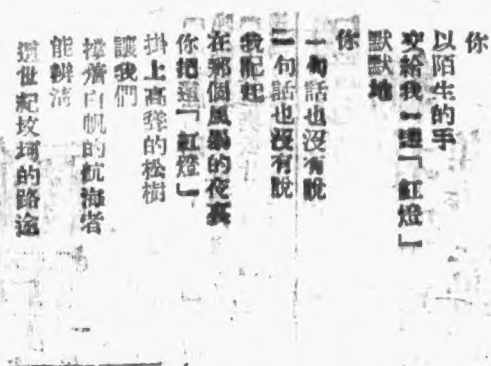 你
以陌生的手
交給我一「紅燈」
默默地
你
一句話也沒有說
一句話也沒有說
我記起
在那個風暴的夜裏
你把這「紅燈」
掛上高聳的松樹
讓我們
撐着白帆的航海者
能辨清
這世紀坎坷的路途